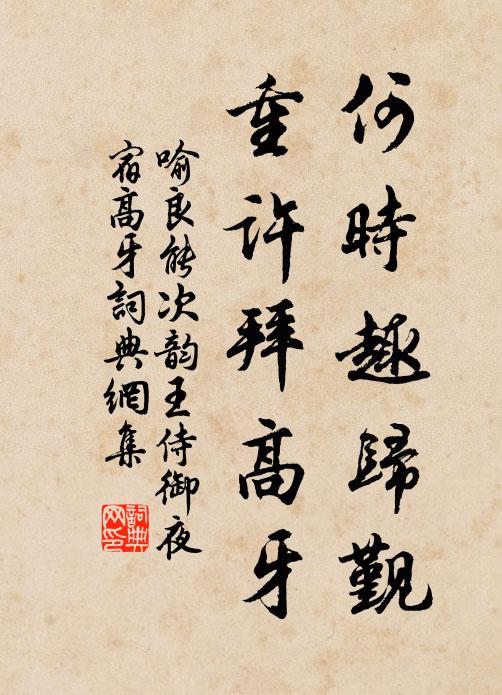 何時趣歸觀
重許拜高牙
喻良能次韵王侍御夜
宿高牙詞典網集
詞典
网印